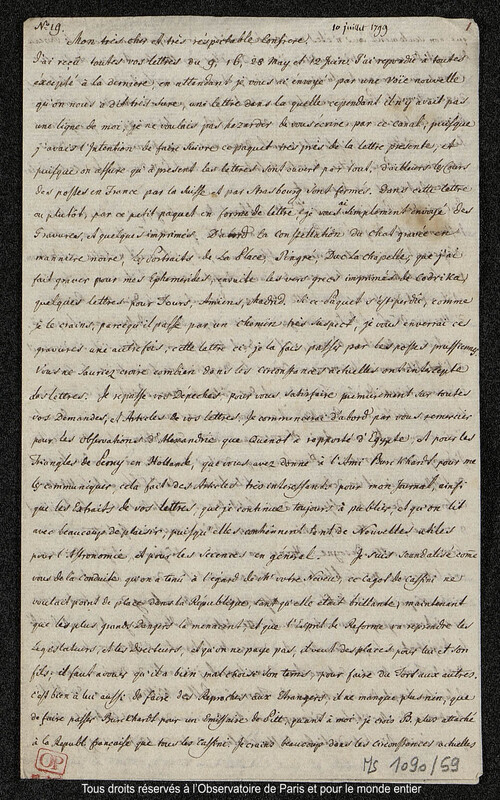 No. 19.
10 juillet 1799
1
Mon très cher et très réspectable Confrere.
J'ai reçu toutes vos lettres du 9, 16, 28 May et 12 Juin. J'ai repondu à toutes
excepté à la derniere, en attendant je vous ai envoyé par une voie nouvelle
qu'on nous a dit très sure, une lettre dans la quelle cependant il n'y avait pas
une ligne de moi, je ne voulais pas hazarder de vous écrire par ce canal, puisque
j'avais l'intention de faire suivre ce paquet très près de la lettre presente, et
puisqu'on assure qu'à present les lettres sont ouvert par tout. d'ailleurs le Cours
des postes en France par la Suisse et par Strasbourg sont fermés. Dans cette lettre
ou plutôt, par ce petit paquet en forme de lettre, je vous ai simplement envoyé des
Gravures, et quelques imprimés. D'abord la Constellation du Chat gravée en
mannière noire, les Portraits de La Place, Pingré, Duc la Chapelle, que j'ai
fait graver pour mes Ephemerides, ensuite les vers grecs imprimés de Codrika,
quelques lettres pour Tours, Amiens, Madrid. si ce paquet s'est perdu, comme
je le crains, parcequ'il passe par un chemin très suspect, je vous enverrai ces
gravures une autre fois, cette lettre ci je la fais passer par les postes prussiennes,
Vous ne sauriez croire combien dans les circonstances actuelles on intercepte
des lettres. Je repasse vos Depeches, pour vous satisfaire premierement sur toutes
vos Demandes, et Articles de vos lettres. Je commencerai d'abord par vous remercier
pour les Observations d'Alexandrie que Quenot a rapporté d'Egypte, et pour les
Triangles de Perny en Hollande, que vous avez donné à l'Ami Burckhardt pour me
les communiquer, cela fait des Articles très interessants pour mon Journal, ainsi
que les Extraits de vos lettres, que je continue toujours à publier, et qu'on lit
avec beaucoup de plaisir, puisqu'elles contiennent tant de Nouvelles utiles
pour l'Astronomie, et pour les Sciences en général. Je suis scandalisé come
vous de la conduite qu'on a tenu à l'égard de Mr votre Neveu, ce Cagot de Cassini ne
voulait point de place dans la République, tant qu'elle était brillante, maintenant
que les plus grands Dangers la menacent, et que l'esprit de Reforme va reprendre les
Legislateurs, et les Directeurs, et qu'on ne paye pas, il veut des places pour lui et son
fils, il faut avouer qu'il a bien mal choisi son tems, pour faire du Tort aux autres.
c'est bien à lui aussi de faire des Reproches aux Etrangers, il ne manque plus rien, que
de faire passer Burckhardt pour un Emissaire de Pitt, quant à moi je crois B. plus attaché
à la Republ. française que tous les Cassini. Je crains beaucoup dans les circonstances actuelles
OP
Ms 1090/59
Tous droits réservés à l'Observatoire de Paris et pour le monde entier